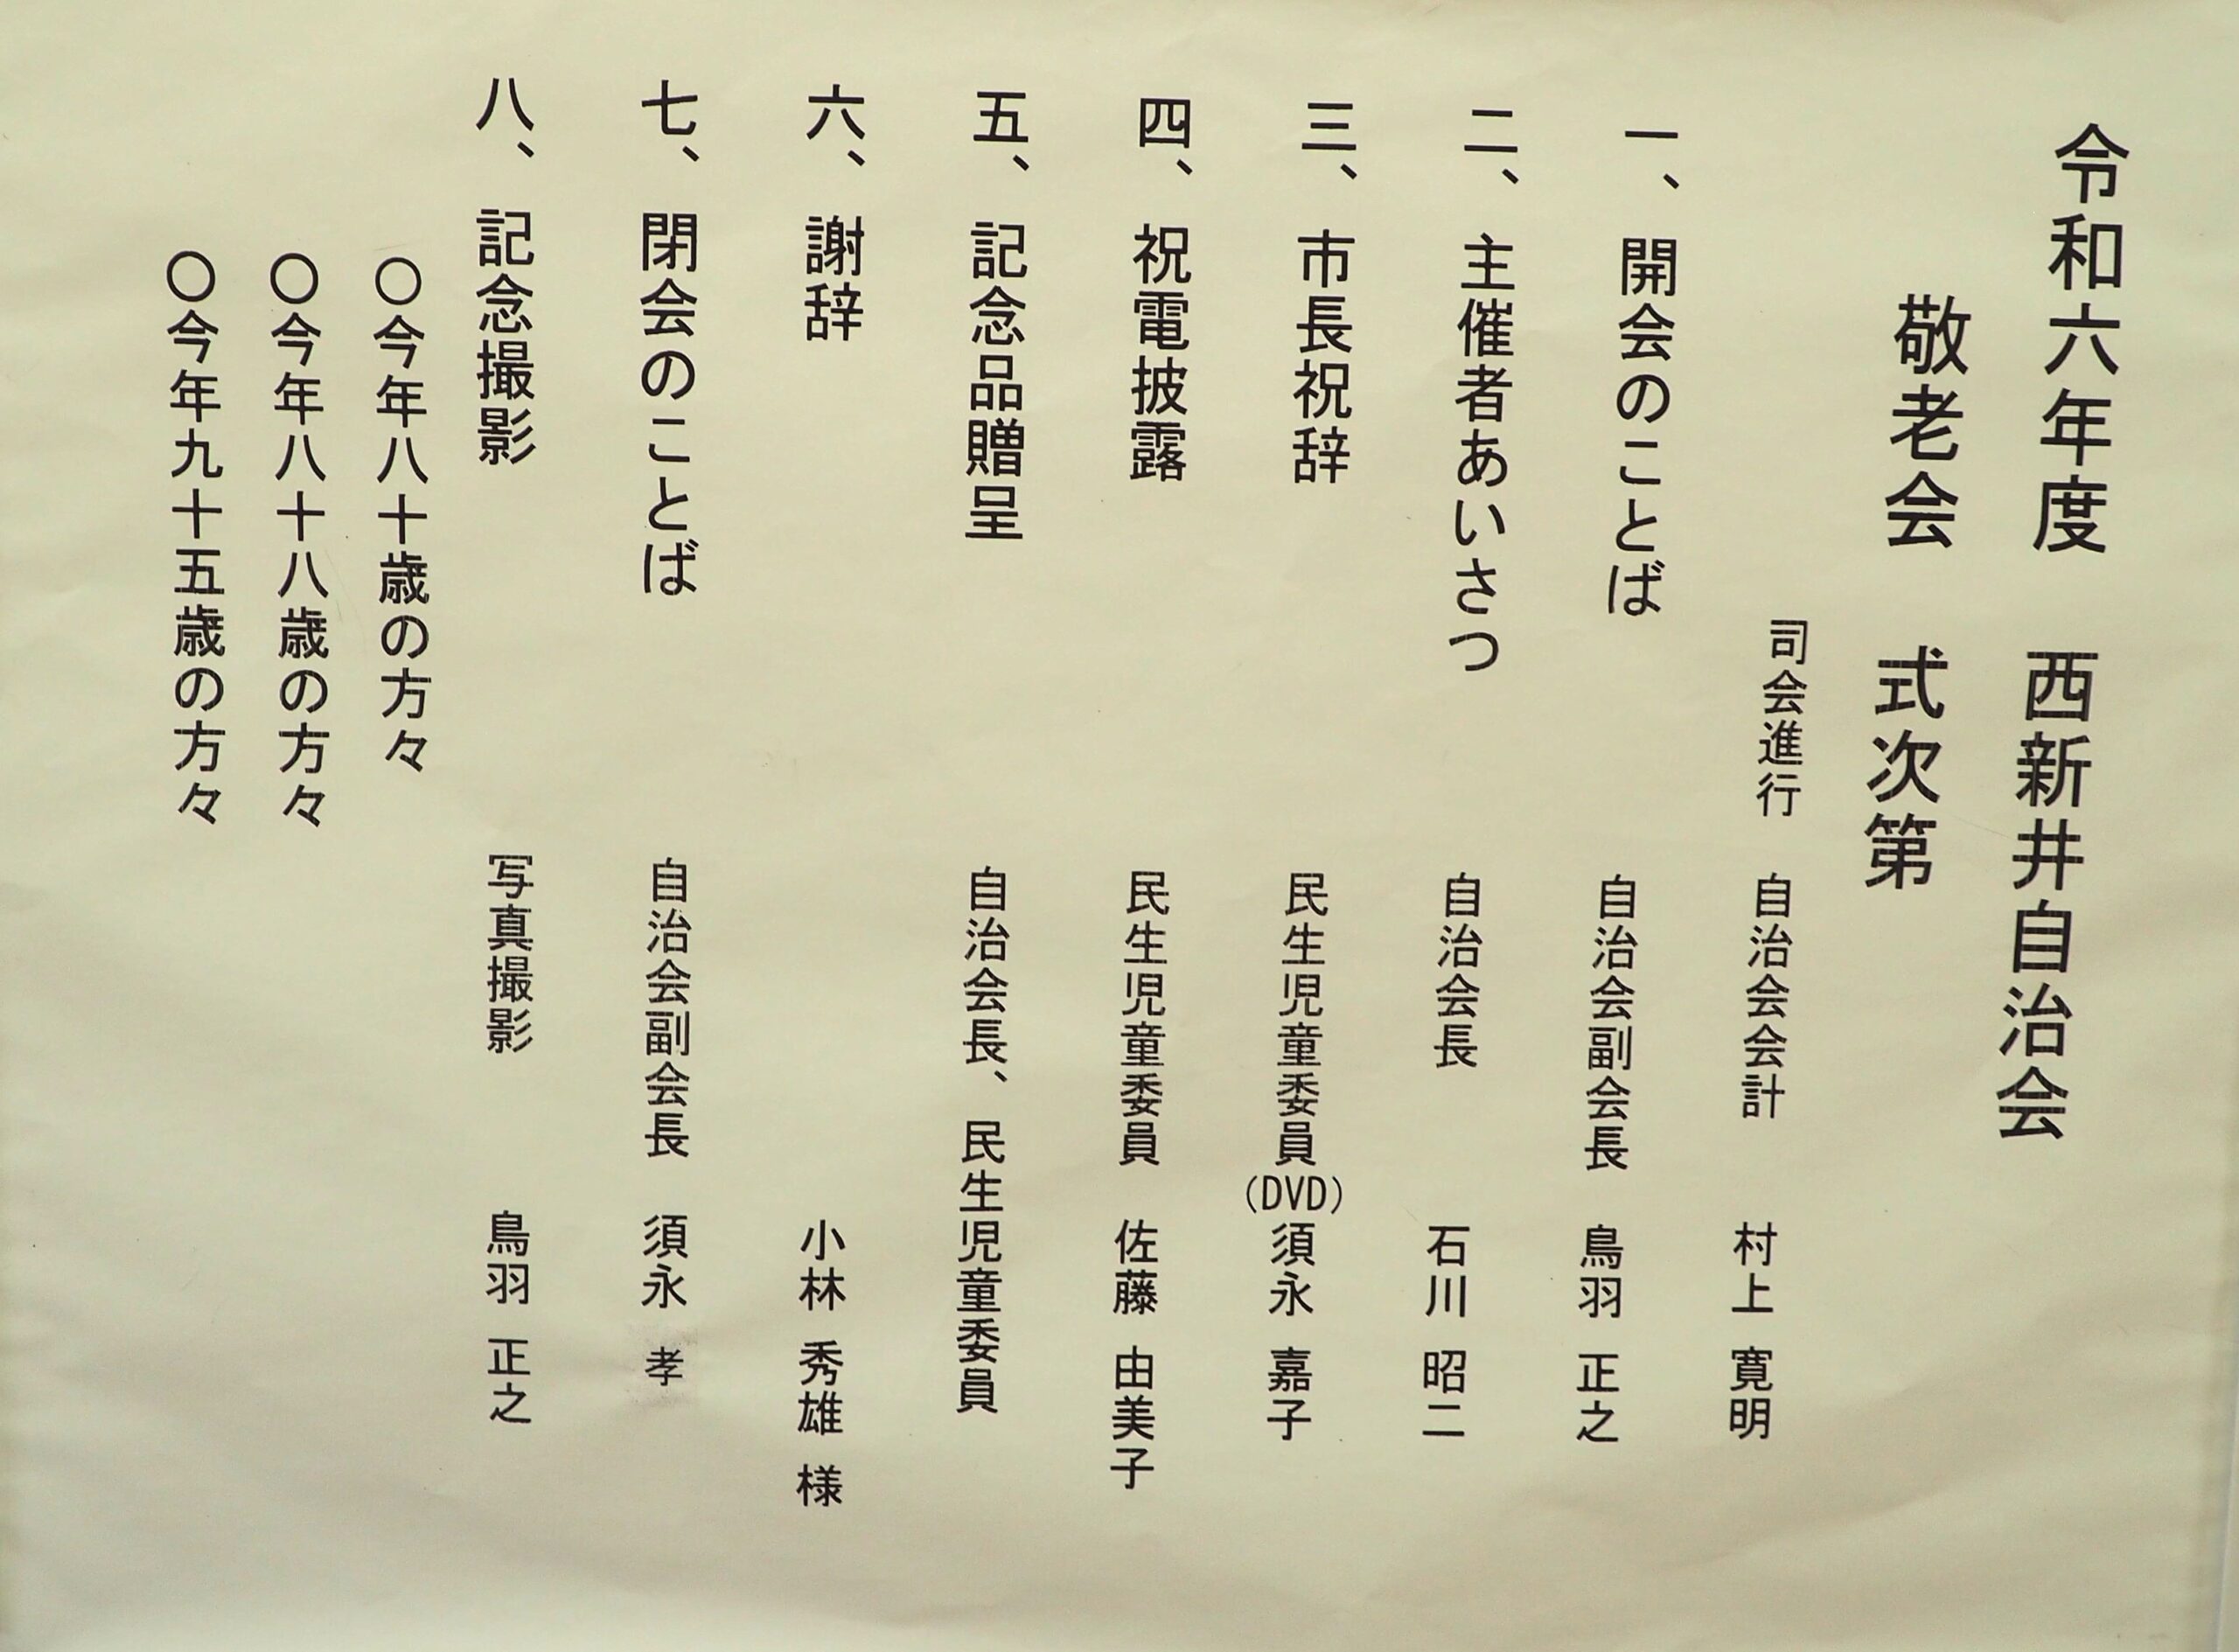 令和六年度　西新井自治会
敬老会　式次第
司会進行　自治会会計　村上　寛明
一、開会のことば　自治会副会長　鳥羽　正之
二、主催者あいさつ　自治会長　石川　昭二
三、市長祝辞　民生児童委員(DVD)　須永　嘉子
四、祝電披露　民生児童委員　佐藤　由美子
五、記念品贈呈　自治会長、民生児童委員
六、謝辞　小林　秀雄　様
七、閉会のことば　自治会副会長　須永　孝
八、記念撮影　写真撮影　鳥羽　正之
〇今年八十歳の方々
〇今年八十八歳の方々
〇今年九十五歳の方々